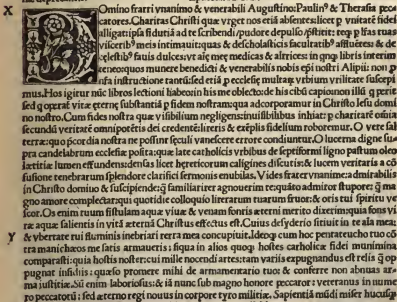 X
DOmino fratri vnanimo & venerabili Augustino: Paulinꝰ & Therasia pec
catores. Charitas Christi quæ vrget nos etiã absentes: licet ꝑ vnitatẽ fidei
alligat: ipsa fiduciã ad te scribendi/pudore depulso/pstitit: teq; ꝑ lras tuas
visceribꝰ meis intimauit: quas & descholasticis facultatibꝰ affluẽtes: & de
cælestibꝰ fauis dulces: vt aĩę meę medicas & altrices: in qnq; libris interim
teneo: quos munere benedicti & venerabilis nobis epi nostri Alipii: non ꝓ
nra instructione tantũ: sed etiã ꝑ ecclesię multarũ vrbium vtilitate suscepi
mus. Hos igitur nũc libros lectioni habeo: in his me oblecto: de his cibũ capio: non illũ q perit
sed q operat vitæ æternę substantiã ꝑ fidem nostram: qua adcorporamur in Christo Iesu domi
no nostro. Cum fides nostra quæ visibilium negligens: inuisibilibus inhiat: ꝑ charitatẽ omnia
secundũ veritatẽ omnipotẽtis dei credentẽ: literis & exẽplis fidelium roboremur. O vere sal
terræ: quo pcordia nostra ne possint seculi vanescere errore condiuntur. O lucerna digne su-
pra candelabrum ecclesiæ posita: quæ late catholicis vrbibus de septiformi ligno pastum oleo
lætitiæ lumen effundens: densas licet hęreticorum caligines discutis: & lucem veritatis a cõ
fusione tenebrarum splendore clarifici sermonis enubilas. Vides frater vnanime: admirabilis
in Christo domino & suscipiende: q̃ familiariter agnouerim te: quãto admiror stupore: q̃ ma
gno amore complectar: qui quotidie colloquio literarum tuarum fruor: & oris tui spiritu ve
scor. Os enim tuum fistulam aquæ viuæ & venam fontis æterni merito dixerim: quia fons vi
ræ aquæ salientis in vitã æternã Christus effectus est. Cuius desyderio sitiuit in te aĩa mea:
Y
& vbertate tui fluminis inebriari terra mea concupiuit. Ideoq; cum hoc pentateucho tuo cõ
tra manichæos me satis armaueris: siqua in alios quoq; hostes catholicæ fidei munimina
comparasti: quia hostis noster: cui mille nocendi artes: tam variis expugnandus est relis q̃ op
pugnat insidiis: quæso promere mihi de armamentario tuo: & conferre non abnuas ar-
ma iustitiæ. Sũ enim laboriosus: & iã nunc sub magno honore peccator: veteranus in nume
ro peccatorũ: sed æterno regi nouus in corpore tyro militiæ. Sapientiã mũdi miser hucusq;